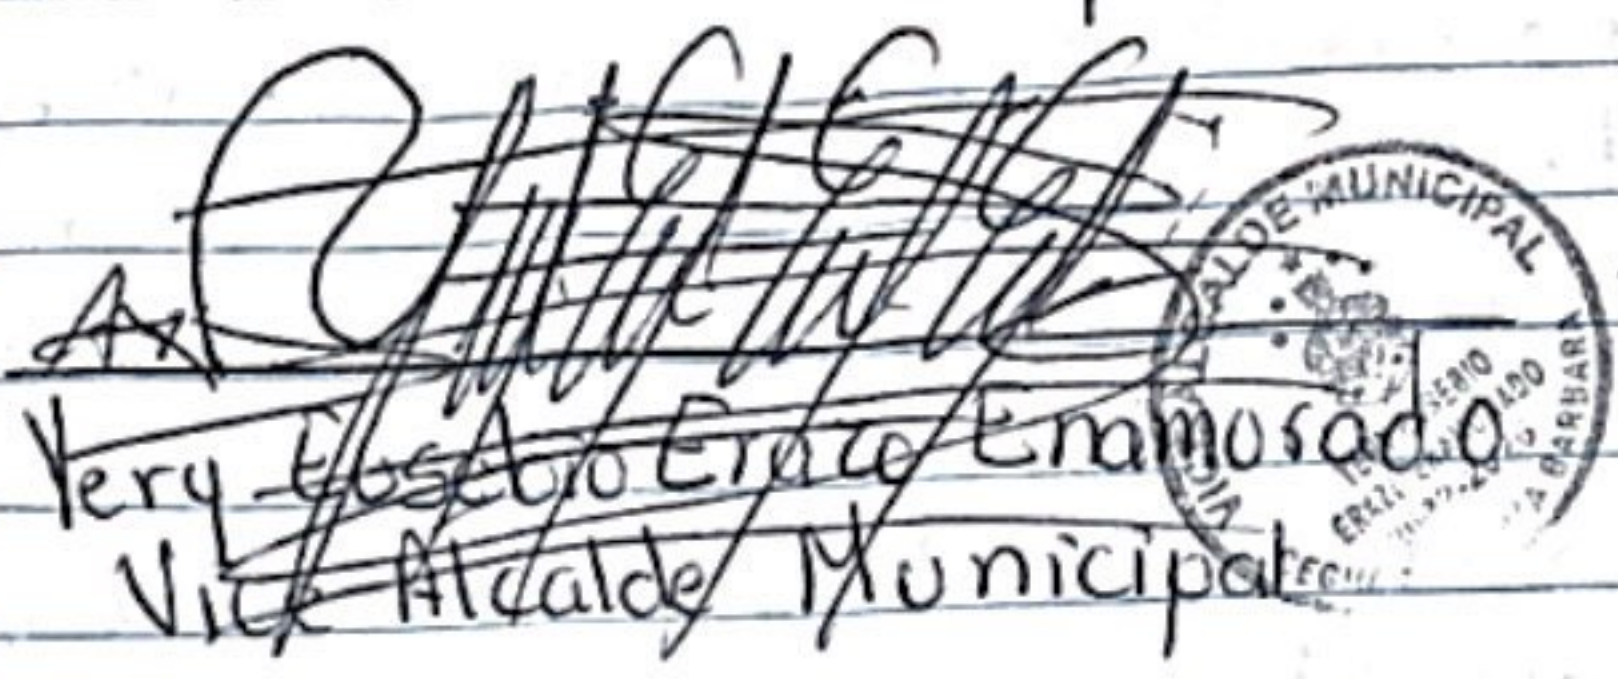 Yery Eusebio Erazo Enamorado
Vice Alcalde Municipal
VICE ALCALDE MUNICIPAL
BARBARA